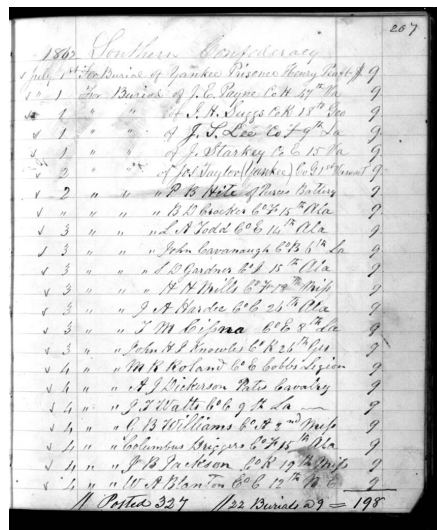 207
1862 Southern Confederacy
July 1st For Burial of Yankee Prisoner Henry 9
" 1 For Burial of J. E. Payne Co H 47th Va 9
" 1 " " of J. H. Suggs Co K 18th Geo 9
1 " " of J. S. Lee Co F 9th La 9
1 " " of J. Starkey Co E 15 Va 9
2 " " of Jos Taylor (Yankee) Co G 1st 9
2 " " " P B Hite of Purcus Battery 9
" " " " B D Crocker Co F 15th Ala 9
3 " " L A Todd Co E 14th Ala 9
3 " " John Cavanaugh Co B 6th La 9
3 " " S D Gardner Co I 15th Ala 9
3 " " H H Mills Co F 18th Miss 9
3 " " J A Harder Co C 26th Ala 9
3 " " T M Co E 8th La 9
3 " " John H J Knowles Co K 26th Geo 9
4 " " M K Roland Co E Cobbs Legion 9
4 " " A J Dickerson Cavalry 9
4 " " J T Watts Co C 9th La 9
4 " " C B Williams Co A 2nd Miss 9
4 " " Columbus Driggers Co F 15th Ala 9
4 " " J B Jackson Co K 19th Miss 9
4 " " W A Blanton Co C 12th N C 9
Posted 327 22 Burials @ 9 = 198